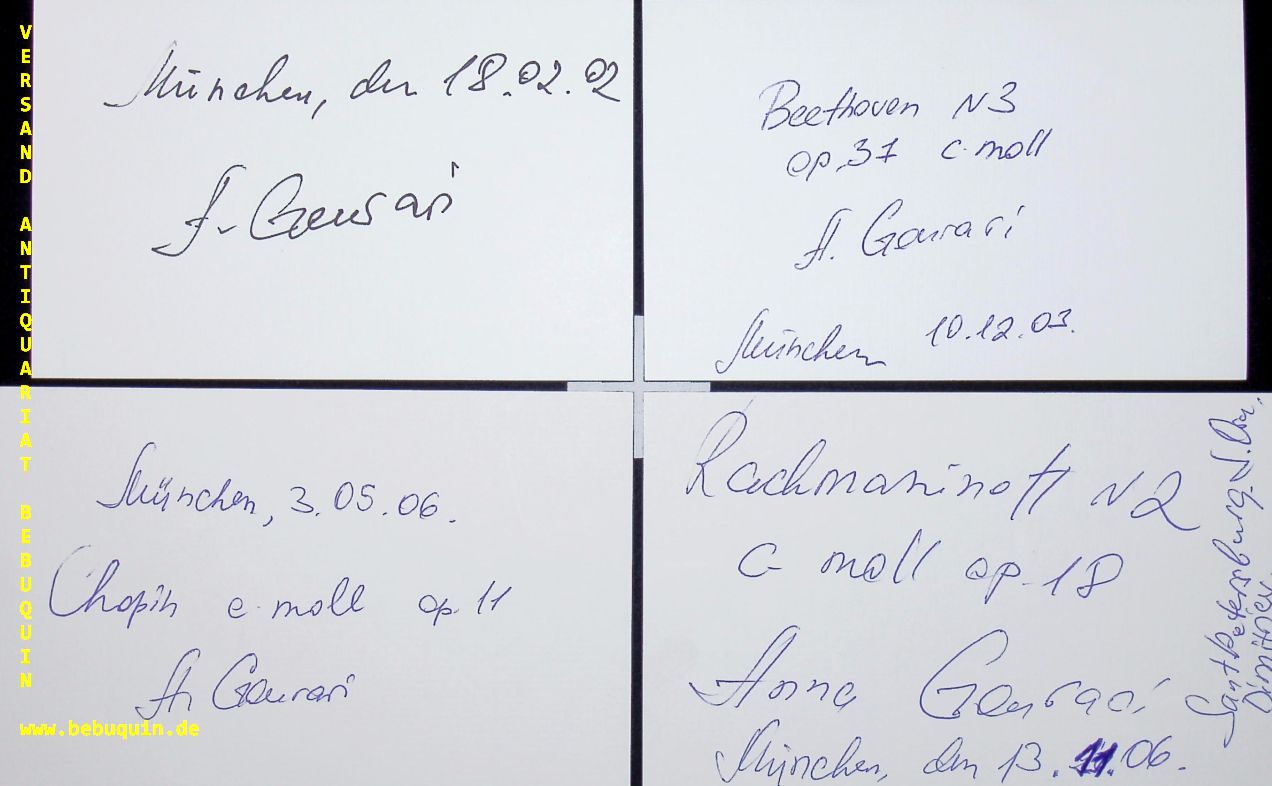 VERSAND ANTIQUARIAT BEBUQUIN
www.bebuquin.de
München, den 18.02.02
A. Gourari
Beethoven N3
op.37 c-moll
A. Gourari
München 10.12.03.
München, 3.05.06.
Chopin e-moll op. 11
A. Gourari
Rachmaninoff N2
c moll op. 18
Anna Gourari
München, den 13.11.06.
Sankt Petersburg